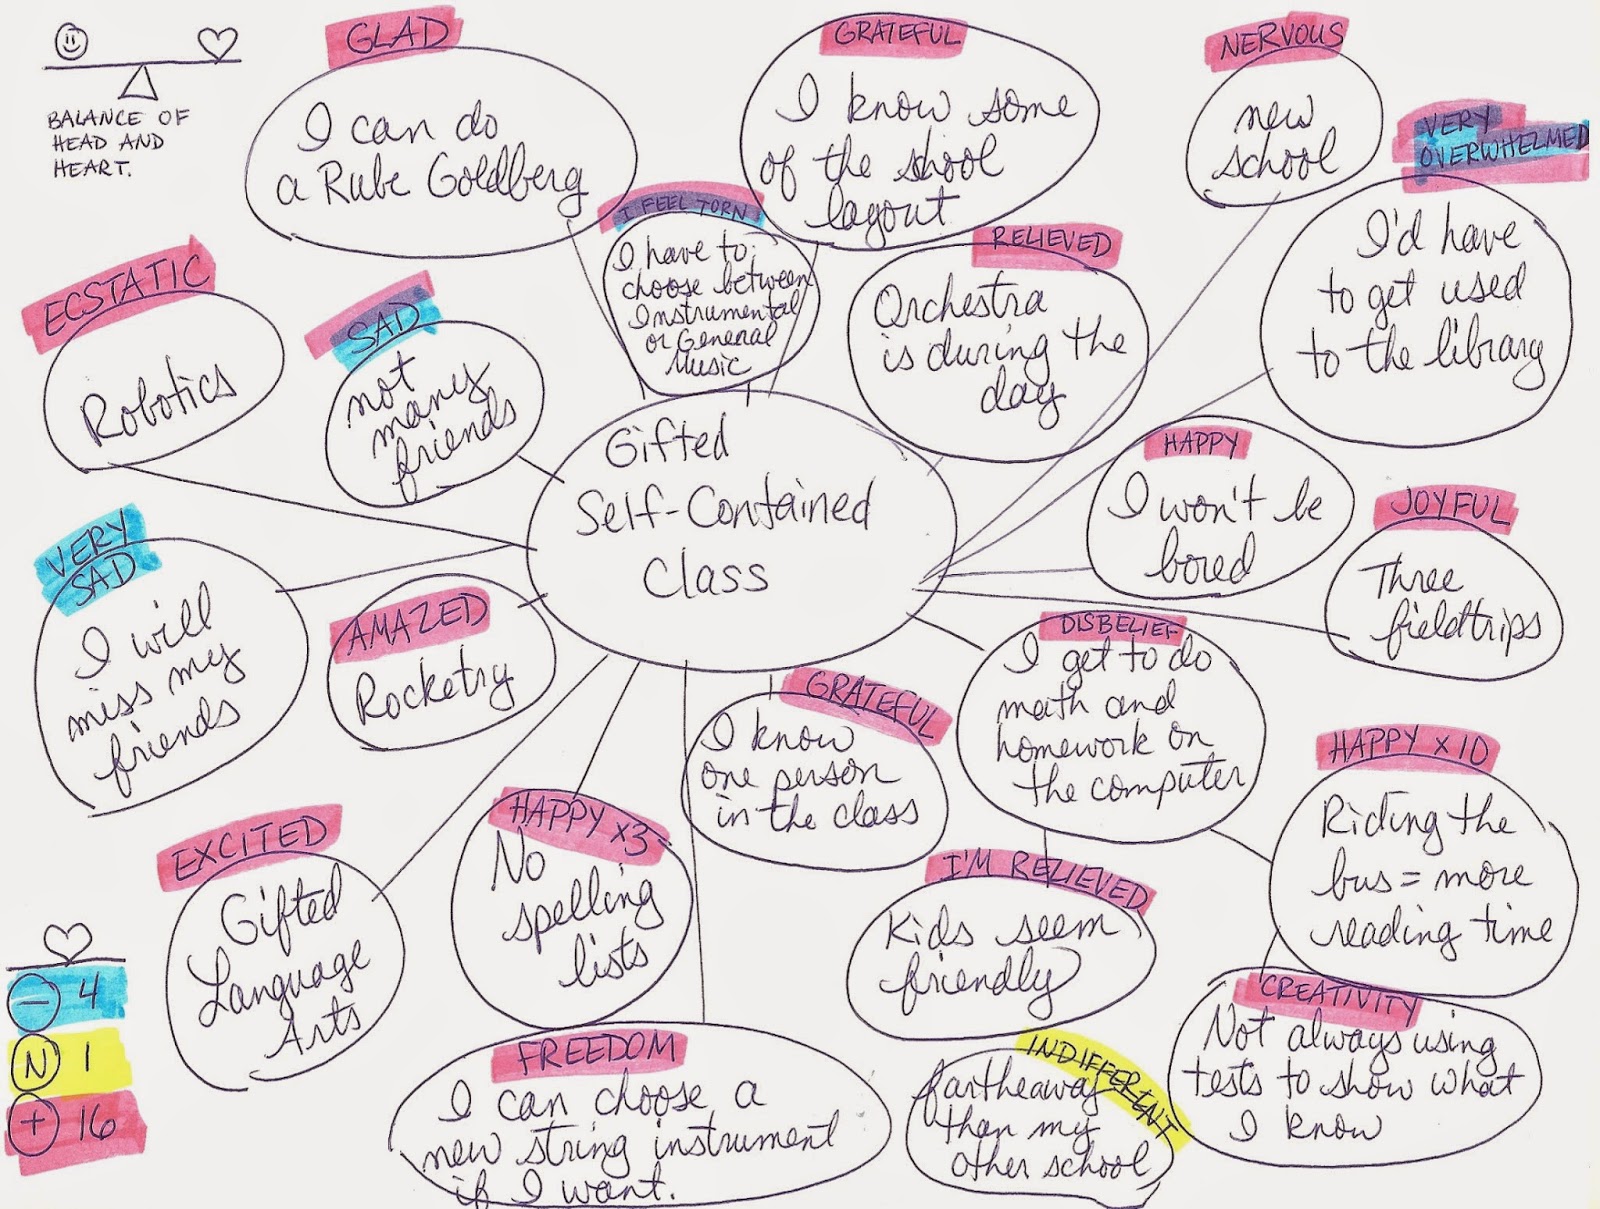 BALANCE OF
HEAD AND
HEART.
GLAD
I can do
a Rube Goldberg
GRATEFUL
I know some
of the shool
layout
NERVOUS
new
school
VERY
OVERWHELMED
I'd have
to get used
to the library
I FEEL TORN
I have to
choose between
Instrumental
or General
Music
RELIEVED
Orchestra
is during the
day
ECSTATIC
Robotics
SAD
not
many
friends
Gifted
Self-Contained
Class
HAPPY
I won't be
bored
JOYFUL
Three
fieldtrips
VERY
SAD
I will
miss my
friends
AMAZED
Rocketry
DISBELIEF
I get to do
math and
homework on
the computer
GRATEFUL
I know
one person
in the class
HAPPY x10
Riding the
bus = more
reading time
EXCITED
Gifted
Language
Arts
HAPPY x3
No
spelling
lists
I'M RELIEVED
Kids seem
friendly
CREATIVITY
Not always using
tests to show what
I know
FREEDOM
I can choose a
new string instrument
if I want.
INDIFFERENT
fartheaway
than my
other school
− 4
N 1
+ 16